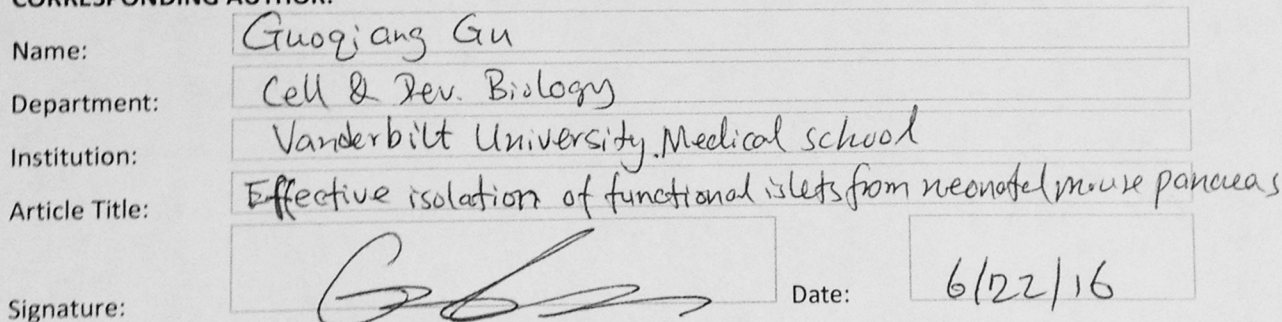 CORRESPONDING AUTHOR:
Name: Guoqiang Gu
Department: Cell & Dev. Biology
Institution: Vanderbilt University. Medical school
Article Title: Effective isolation of functional islets from neonatal mouse pancreas
Signature:
Date: 6/22/16